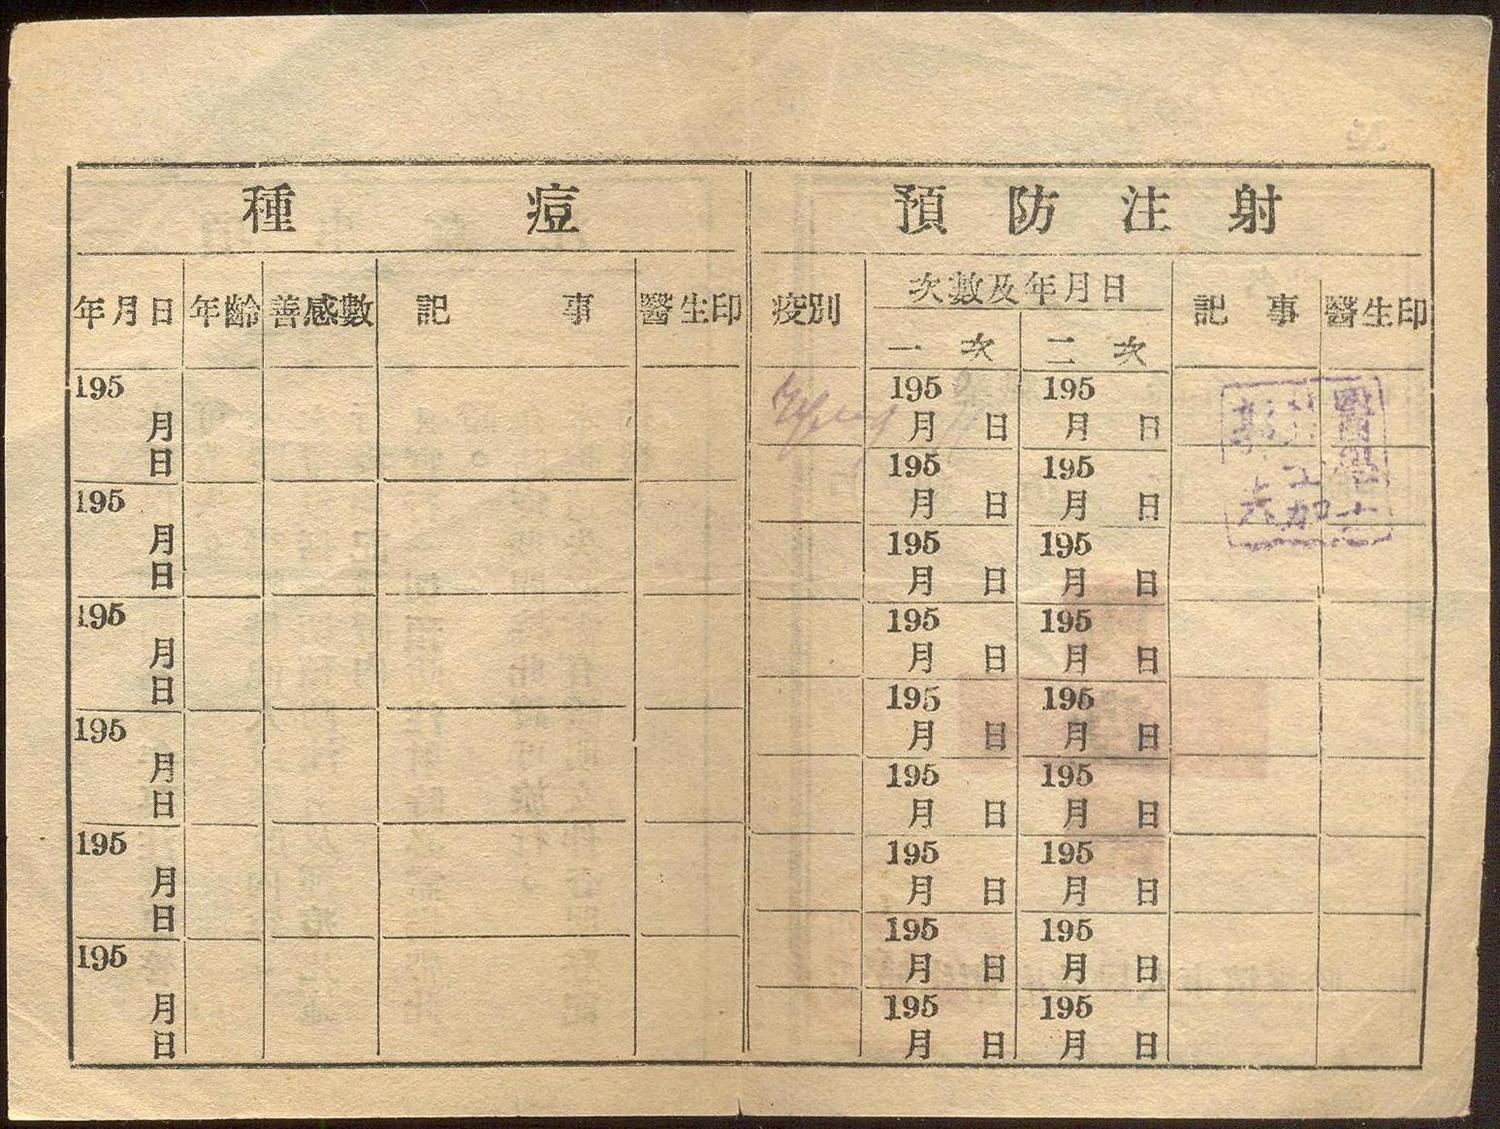 種痘
預防注射
年月日 年齡 善感數 記事 醫生印
疫別 次數及年月日 記事 醫生印
一次 二次
195
月
日
195
月
日
195
月
日
195
月
日
195
月
日
195
月
日
195 195
月 日 月 日
195 195
月 日 月 日
195 195
月 日 月 日
195 195
月 日 月 日
195 195
月 日 月 日
195 195
月 日 月 日
195 195
月 日 月 日
195 195
月 日 月 日
195 195
月 日 月 日